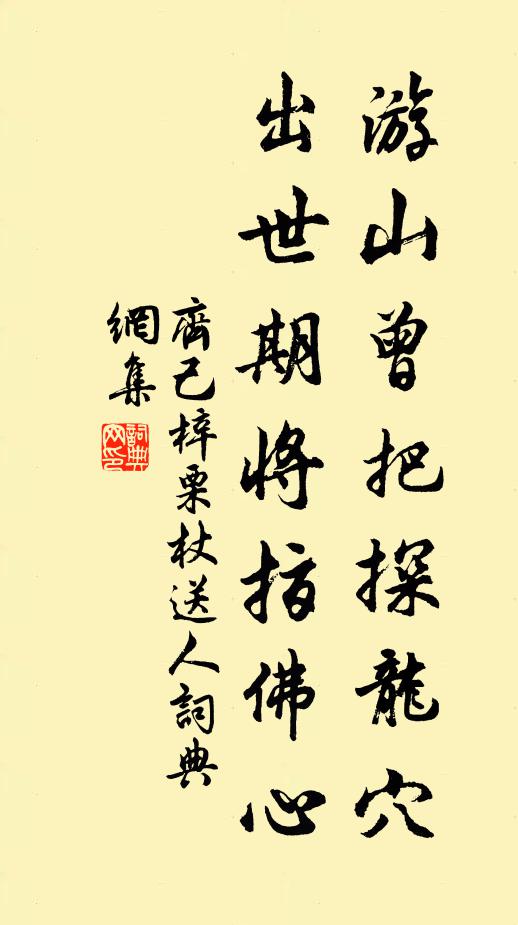 游山曾把探龍穴
出世期將指佛心
齊己梓栗杖送人詞典
網集
詞典網印